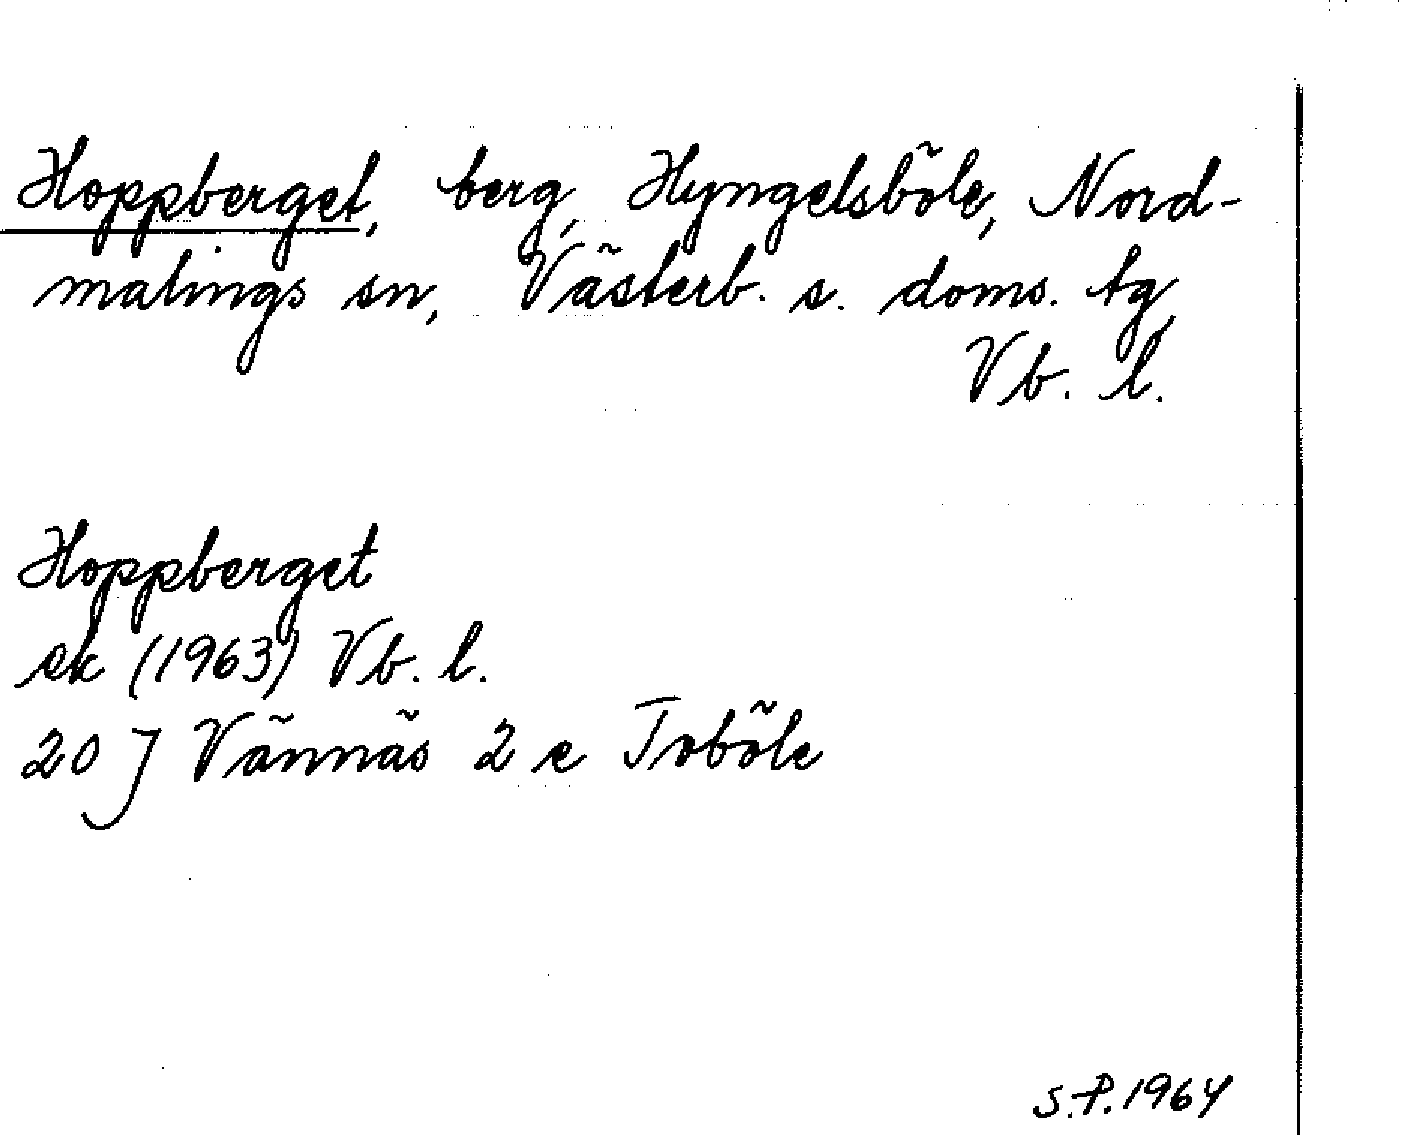 Hoppberget, berg, Hyngelsböle, Nord-
malings sn, Västerb. s. doms. tg,
Vb. l.
Hoppberget
ek (1963) Vb. l.
20 J Vännäs 2 e Toböle
S.P. 1964